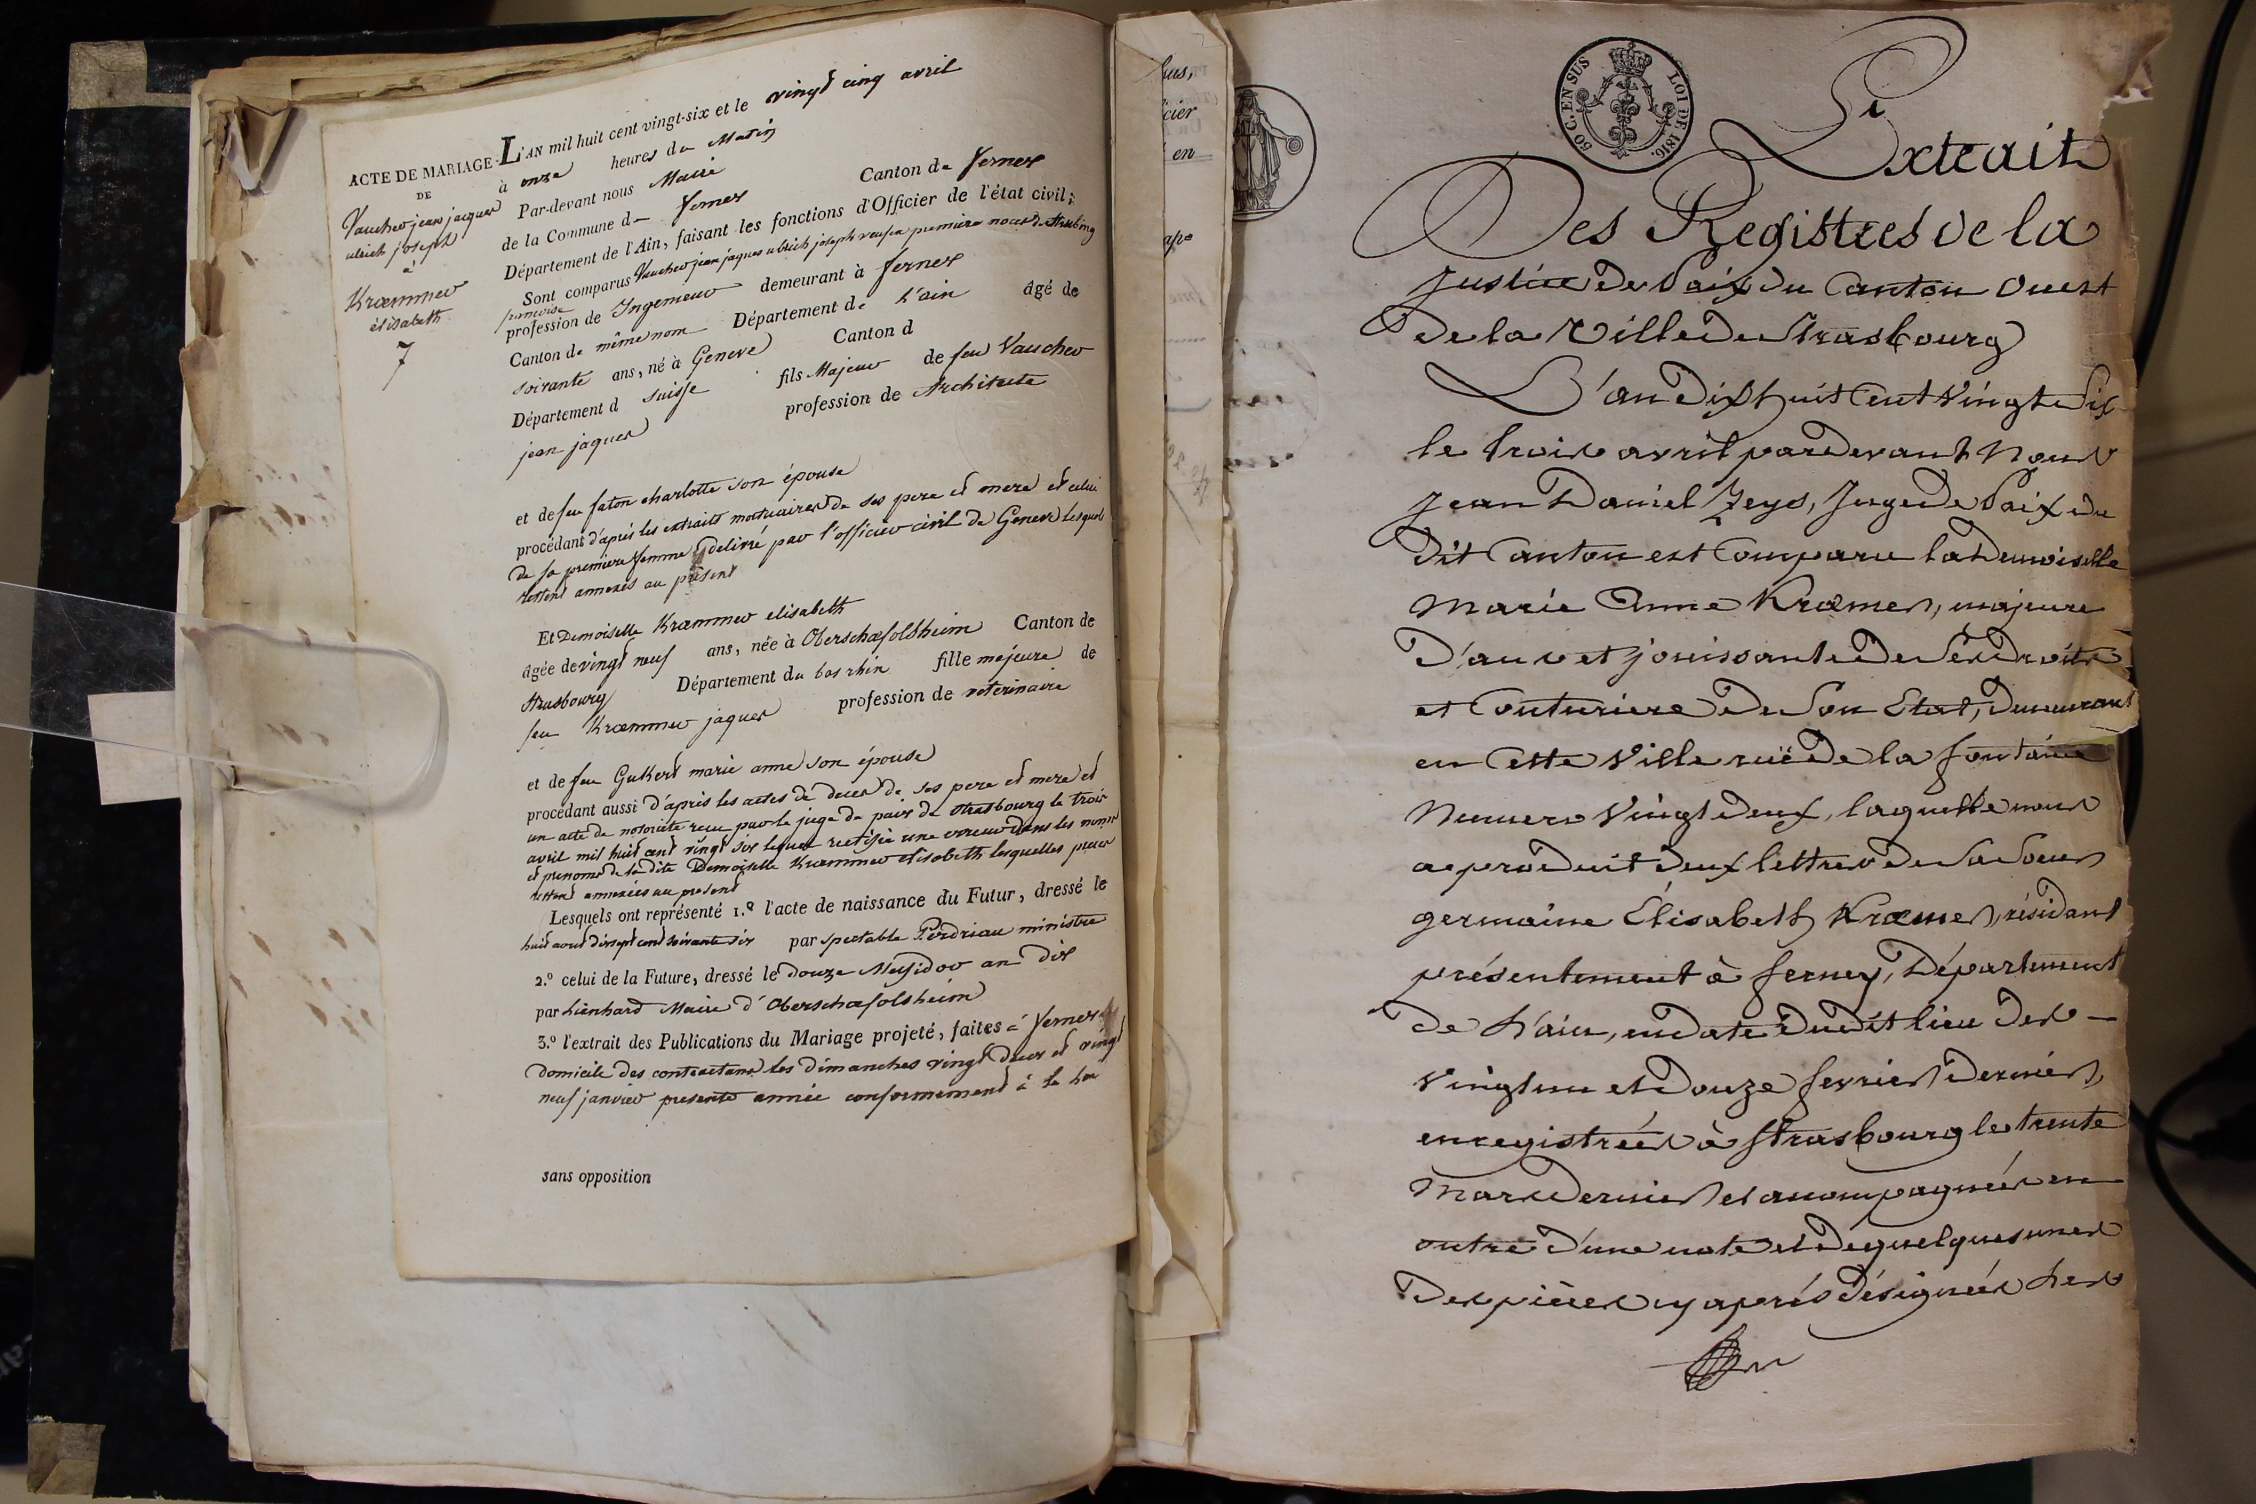 ACTE DE MARIAGE
DE
Vaucher jean jacques
ulrich joseph
à
Krœmmer
élisabeth
7
L'AN mil huit cent vingt-six et le vingt cinq avril
à onze heures du Matin
Par-devant nous Maire
de la Commune de ferney Canton de ferney
Département de l'Ain, faisant les fonctions d'Officier de l'état civil;
Sont comparus Vaucher jean jaques ulrich joseph veuf en premiere noces de
profession de Ingenieur demeurant à ferney
Canton de même nom Département de L'ain âgé de
soixante ans, né à Geneve Canton d
Département d suisse fils Majeur de feu Vaucher
jean jaques profession de Architecte
et de feu faton charlotte son épouse
procédant d'après les extraits mortuaires de ses pere et mere et celui
de sa premiere femme delivré par l'officier civil de Geneve lesquels
restent annexés au présent
Et Demoiselle Krœmmer elisabeth
âgée de vingt neuf ans, née à Oberschœffolsheim Canton de
Strasbourg Département du bas rhin fille majeure de
feu Krœmmer jaques profession de veterinaire
et de feu Gukert marie anne son épouse
procédant aussi d'après les actes de deces de ses pere et mere et
un acte de notorieté recu par le juge de paix de Strasbourg le trois
avril mil huit cent vingt six lequel rectifie une erreur dans les noms
et prenoms de la dite Demoiselle Krœmmer elisabeth lesquelles pieces
restent annexées au present
Lesquels ont représenté 1.º l'acte de naissance du Futur, dressé le
huit aout dixsept cent soixante six par spectable Perdriau ministre
2.º celui de la Future, dressé le douze Messidor an dix
par Lienhard Maire d'Oberschœffolsheim
3.º l'extrait des Publications du Mariage projeté, faites à ferney
domicile des contractans les dimanches vingt deux et vingt
neuf janvier presente année conformement à la loi
sans opposition
cier
en
50 C. EN SUS
LOI DE 1816.
Extrait
Des Registres de la
Justice de Paix du Canton Ouest
de la Ville de Strasbourg
L'an Dixhuit Cent Vingt Six
le trois avril pardevant Nous
Jean Daniel Zeys, Juge de Paix du
dit Canton est Comparu la Demoiselle
Marie Anne Krœmer, majeure
D'ans et jouissante de Ses Droits
et Couturiere de Son Etat, demeurant
en Cette Ville ruë de la fontaine
Numero Vingt Deux, laquelle nous
a produit Deux lettres de Sa Soeur
germaine Élisabeth Krœmer, résidant
présentement à ferney, Département
de L'ain, en date dudit lieu des
vingt un et Douze fevrier Dernier,
enregistrées à Strasbourg le trente
Mars Dernier et accompagnées en
outre D'une note et De quelques unes
Des pièces cy après Désignées Les